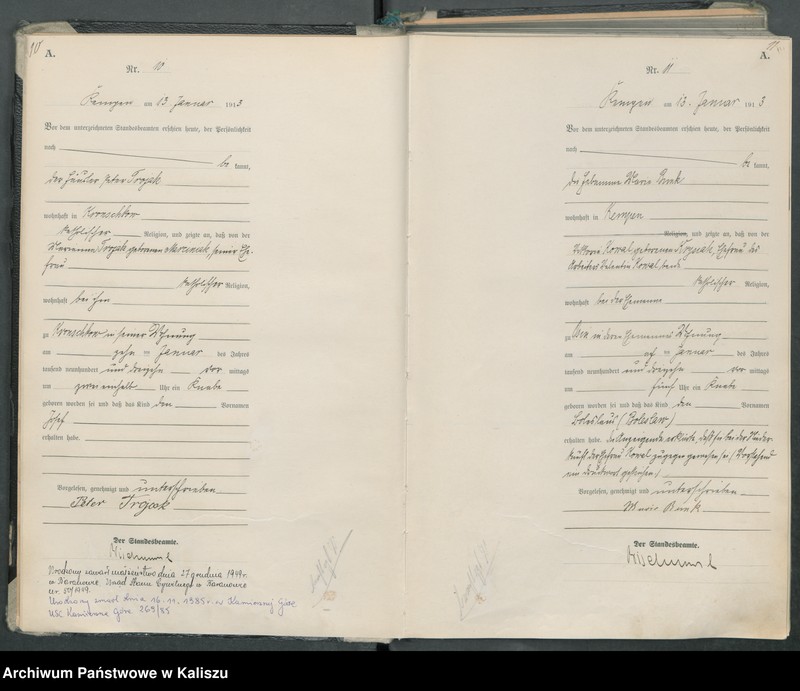 10
A.
Nr. 10
Kempen am 13. Januar 1913
Vor dem unterzeichneten Standesbeamten erschien heute, der Persönlichkeit
nach
be kannt,
der Häusler Peter Trzak
wohnhaft in
katholischer Religion, und zeigte an, daß von der
Marianna geborenen seiner Ehe-
frau
katholischer Religion,
wohnhaft bei ihm
zu in seiner Wohnung
am zehn ten Januar des Jahres
tausend neunhundert und dreizehn vor mittags
um zwei einhalb Uhr ein Knabe
geboren worden sei und daß das Kind den Vornamen
Josef
erhalten habe.
Vorgelesen, genehmigt und unterschrieben
Peter
Der Standesbeamte.
Urodzony zawarł małżeństwo dnia 27 grudnia 1949r.
w Baranowie. Urząd Stanu Cywilnego w Baranowie
nr. 50/1949.
Urodzony zmarł dnia 16.11.1985 r. w Kamiennej Górze
USC Kamienna Góra 269/85
11
A.
Nr. 11
Kempen am 13. Januar 1913
Vor dem unterzeichneten Standesbeamten erschien heute, der Persönlichkeit
nach
be kannt,
die Hebamme Marie
wohnhaft in Kempen
Religion, und zeigte an, daß von der
Viktoria Kowal geborenen Ehefrau des
Arbeiters Valentin Kowal, beide
katholischer Religion,
wohnhaft bei dem Ehemanne
zu in deren Ehemannes Wohnung
am elf ten Januar des Jahres
tausend neunhundert und dreizehn vor mittags
um fünf Uhr ein Knabe
geboren worden sei und daß das Kind den Vornamen
Boleslaus (Boleslaw)
erhalten habe. die Anzeigende erklärte, daß sie bei der Nieder-
kunft der Ehefrau Kowal zugegen gewesen sei. (Vorstehend
ein Druckwort gestrichen.)
Vorgelesen, genehmigt und unterschrieben
Marie
Der Standesbeamte.
Archiwum Państwowe w Kaliszu